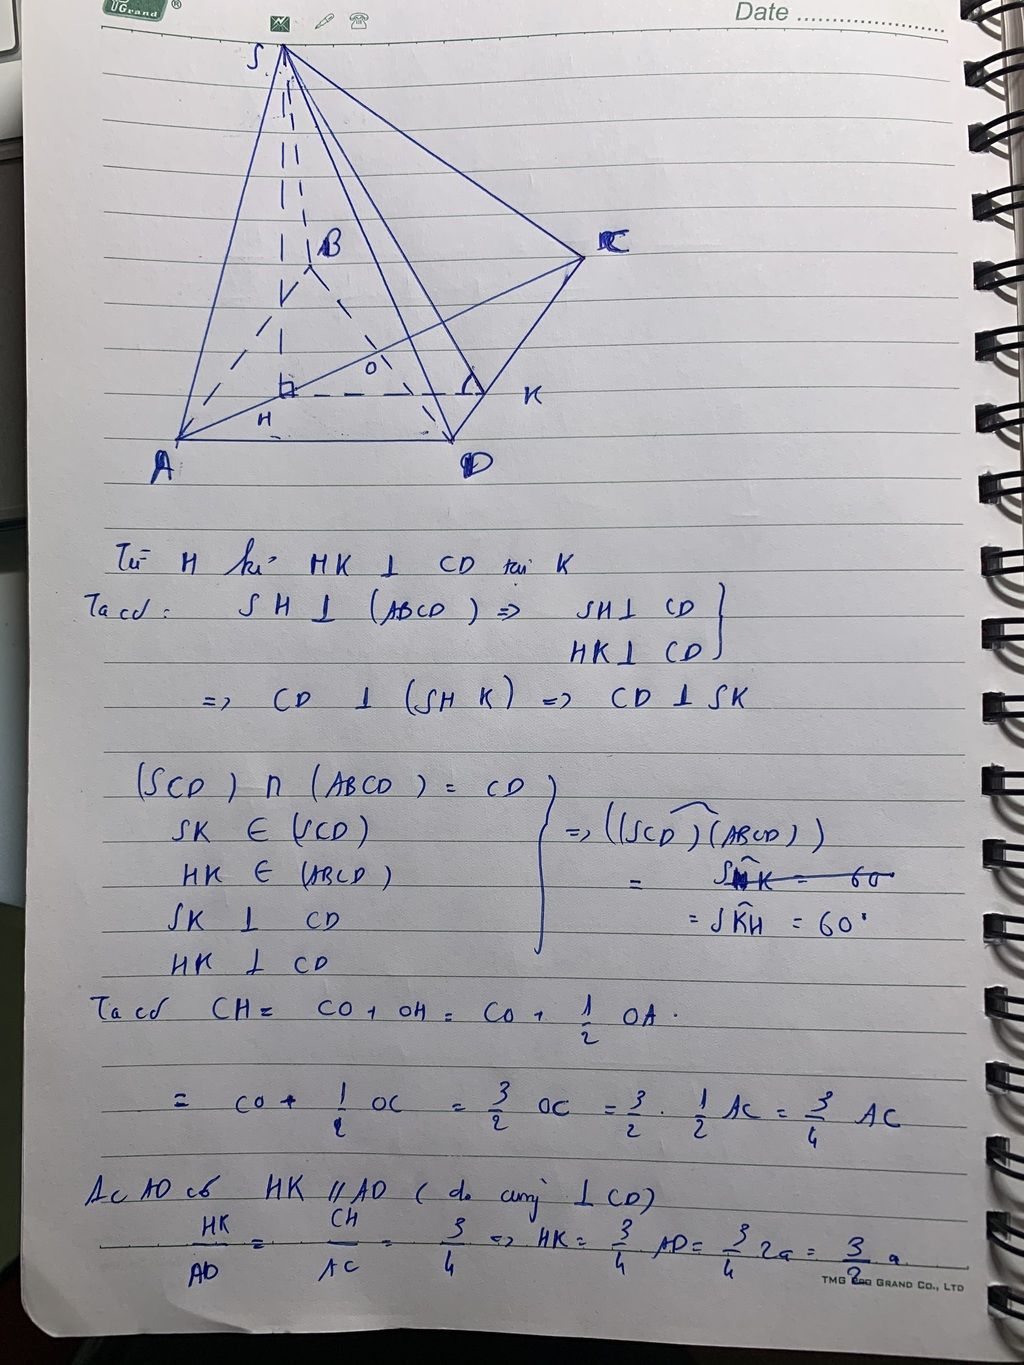 UGrand ®
Date ........................
S
B
C
O
H
K
A
D
Từ H kẻ HK ⊥ CD tại K
Ta có: SH ⊥ (ABCD) => SH ⊥ CD
HK ⊥ CD
=> CD ⊥ (SHK) => CD ⊥ SK
(SCD) ∩ (ABCD) = CD
SK ∈ (SCD) => ((SCD)(ABCD))
HK ∈ (ABCD) =
SK ⊥ CD = SKH = 60°
HK ⊥ CD
Ta có CH = CO + OH = CO + 1/2 OA.
= CO + 1/2 OC = 3/2 OC = 3/2 . 1/2 AC = 3/4 AC
ΔCAD có HK // AD (do cùng ⊥ CD)
HK/AD = CH/AC = 3/4 => HK = 3/4 AD = 3/4 2a = 3/2 a
TMG GRAND CO., LTD